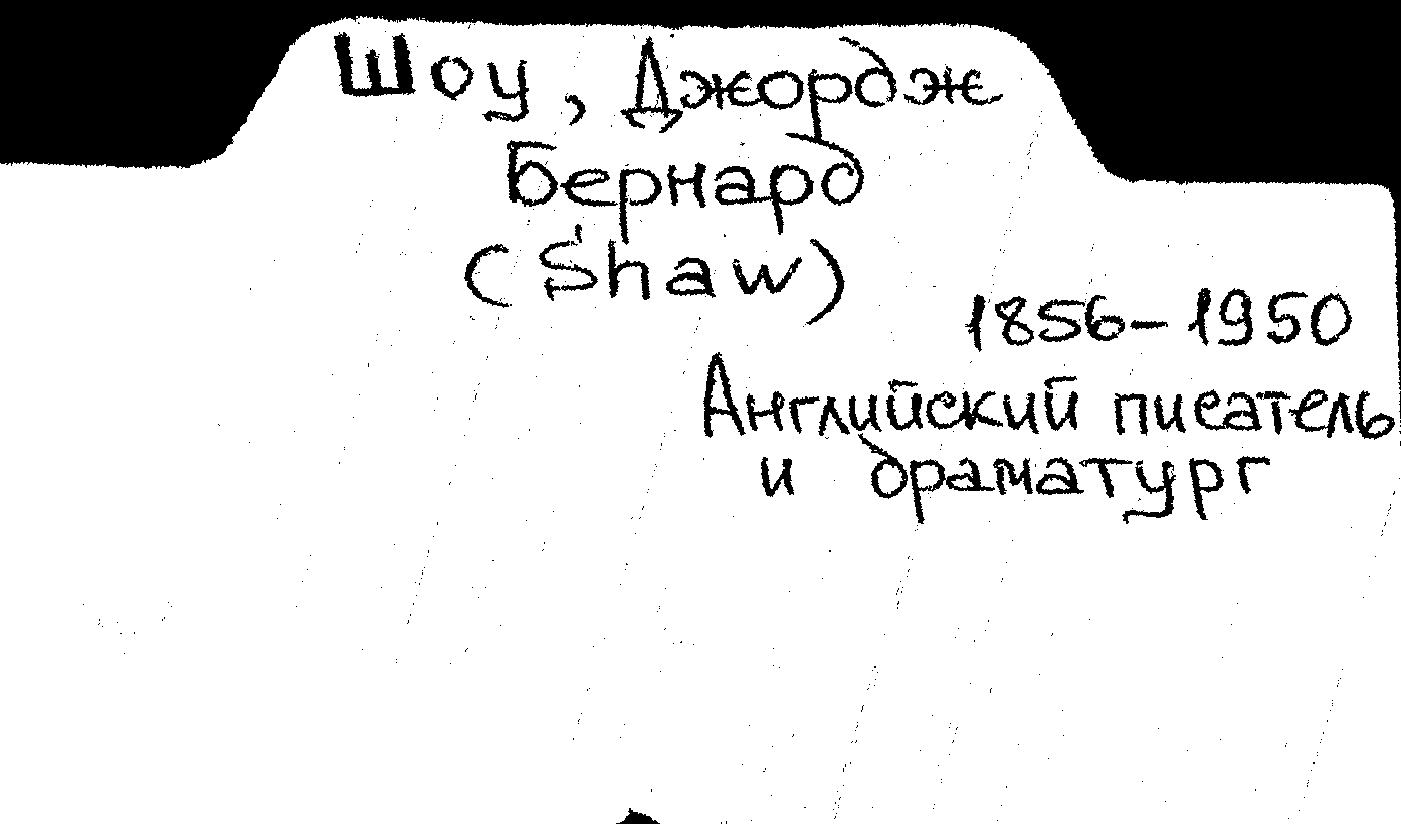 Шоу, Джордж
Бернард
(Shaw)
1856-1950
Английский писатель
и драматург